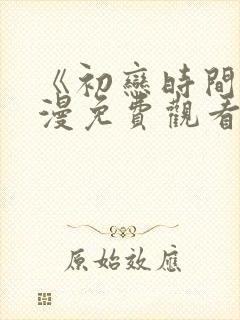 《初戀時間
漫免費觀看
原始效應